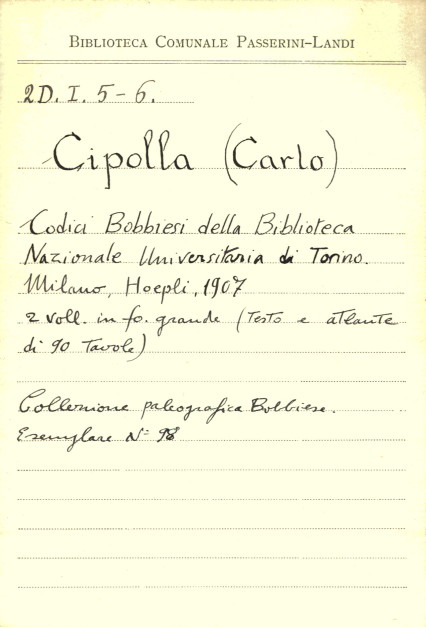 BIBLIOTECA COMUNALE PASSERINI-LANDI
2D. I. 5-6.
Cipolla (Carlo)
Codici Bobbiesi della Biblioteca
Nazionale Universitaria di Torino.
Milano, Hoepli, 1907
2 voll. in fo. grande (Testo e atlante
di 90 Tavole)
Collezione paleografica Bobbiese.
Esemplare N° 98